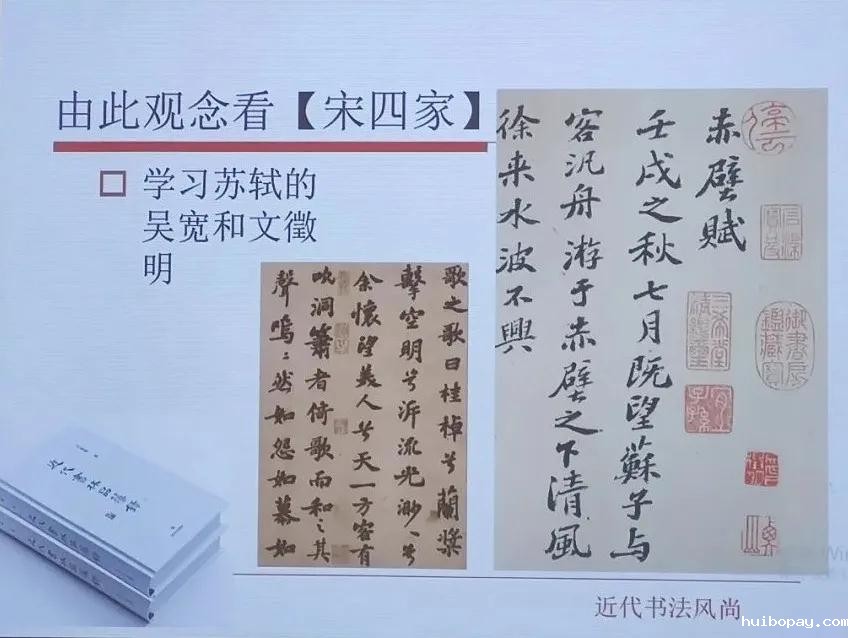 由此观念看【宋四家】
学习苏轼的
吴宽和文徵
明
歌之歌曰桂棹兮蘭槳
擊空明兮泝流光渺〻兮
余懷望美人兮天一方客有
吹洞簫者倚歌而和之其
聲嗚〻然如怨如慕如
赤壁賦
壬戌之秋七月既望蘇子与
客汎舟游于赤壁之下清風
徐来水波不興
三希堂精鑑璽
宜子孫
御書房鑑藏寶
近代书法风尚
huibopay.com